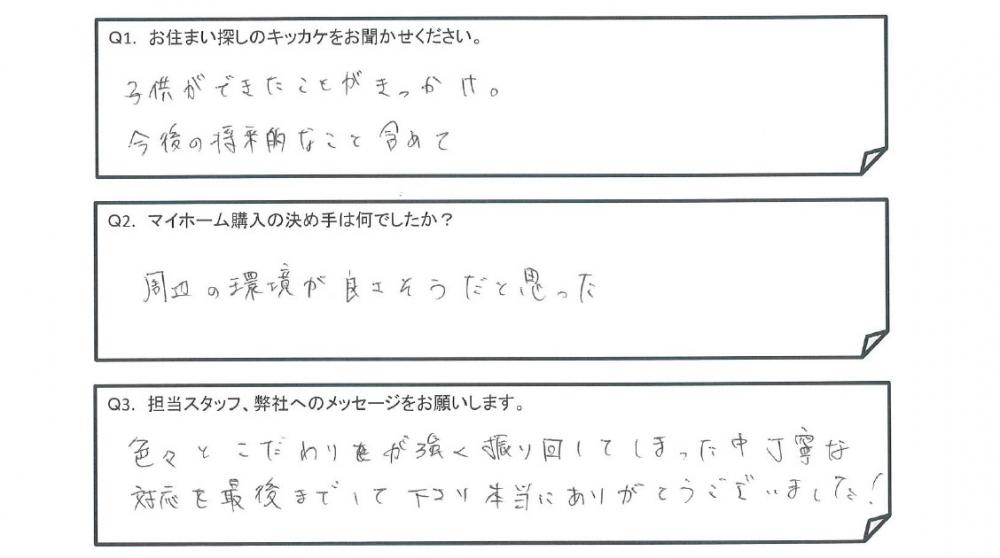 Q1. お住まい探しのキッカケをお聞かせください。
子供ができたことがきっかけ。
今後の将来的なこと含めて
Q2. マイホーム購入の決め手は何でしたか？
周辺の環境が良さそうだと思った
Q3. 担当スタッフ、弊社へのメッセージをお願いします。
色々とこだわりが強く振り回してしまった中丁寧な
対応を最後までして下さり本当にありがとうございました！